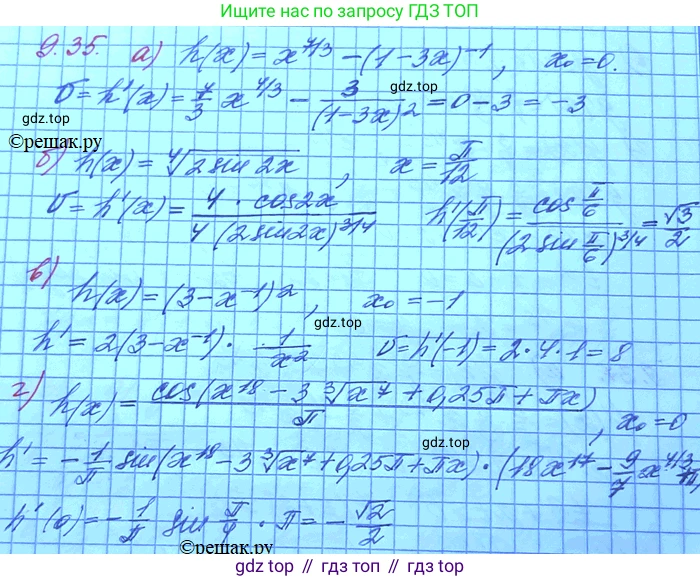 Ищите нас по запросу ГДЗ ТОП
9.35. а) h(x) = x^{7/3} − (1−3x)^{−1}, x₀=0.
gdz.top
gdz.top
σ = h'(x) = 7/3 x^{4/3} − 3/(1−3x)² = 0−3 = −3
gdz.top
©решак.ру
б) h(x) = ⁴√(2 sin 2x), x = π/12
gdz.top
σ = h'(x) = 4 · cos2x / 4(2sin2x)^{3/4} h'(π/12) = cos π/6 / (2 sin π/6)^{3/4} = √3/2
gdz.top
в)
h(x) = (3−x^{−1})², x₀ = −1
gdz.top
h' = 2(3−x^{−1}) · 1/x² σ = h'(−1) = 2·4·1 = 8
gdz.top
г) h(x) = cos(x^{18} − 3 ∛x⁷ + 0,25π + πx) / π, x₀ = 0
gdz.top
h' = −1/π sin(x^{18} − 3∛x⁷ + 0,25π + πx) · (18x^{17} − 9/7 x^{4/3}
h'(0) = −1/π sin π/4 · π = −√2/2
©решак.ру
gdz.top
gdz.top // gdz.top // gdz.top // gdz.top